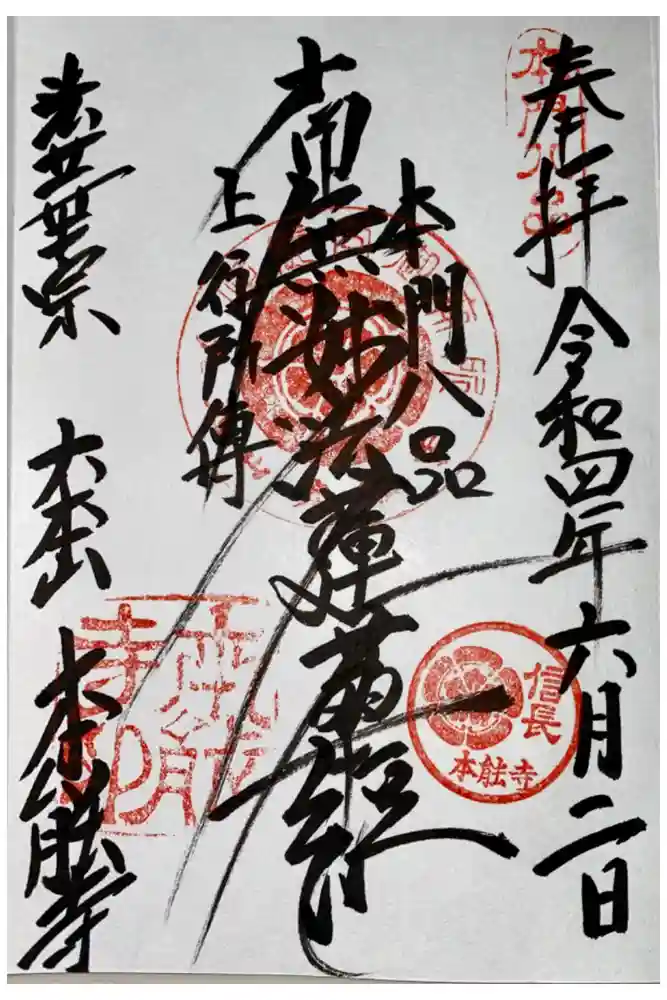 奉拝 令和四年六月二日
本門八品
南無妙法蓮華経
上行所傳
大本山 本能寺
信長
本能寺